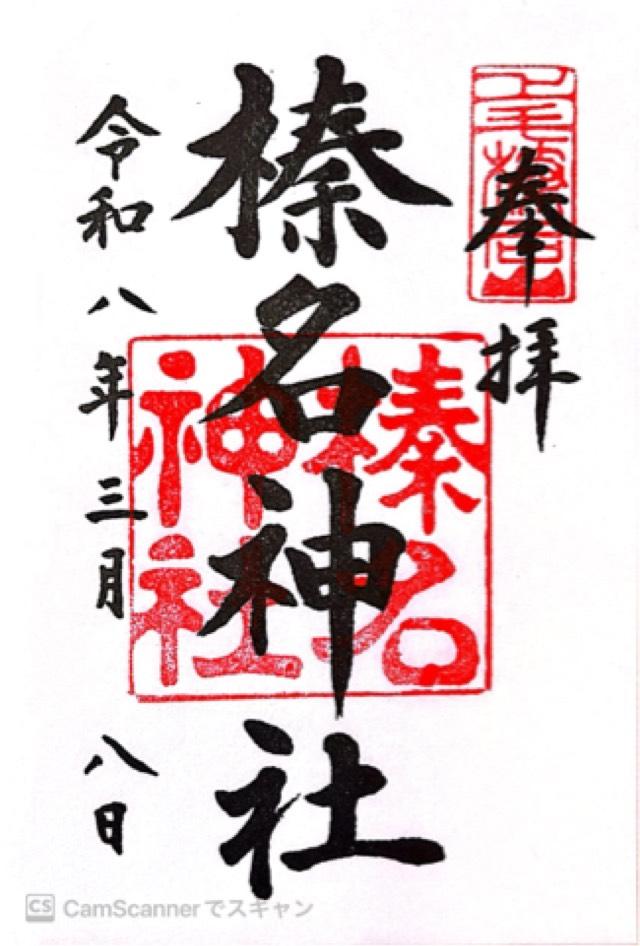 奉拝
上毛榛名山
榛名神社
榛名神社
令和八年三月八日
CS CamScannerでスキャン